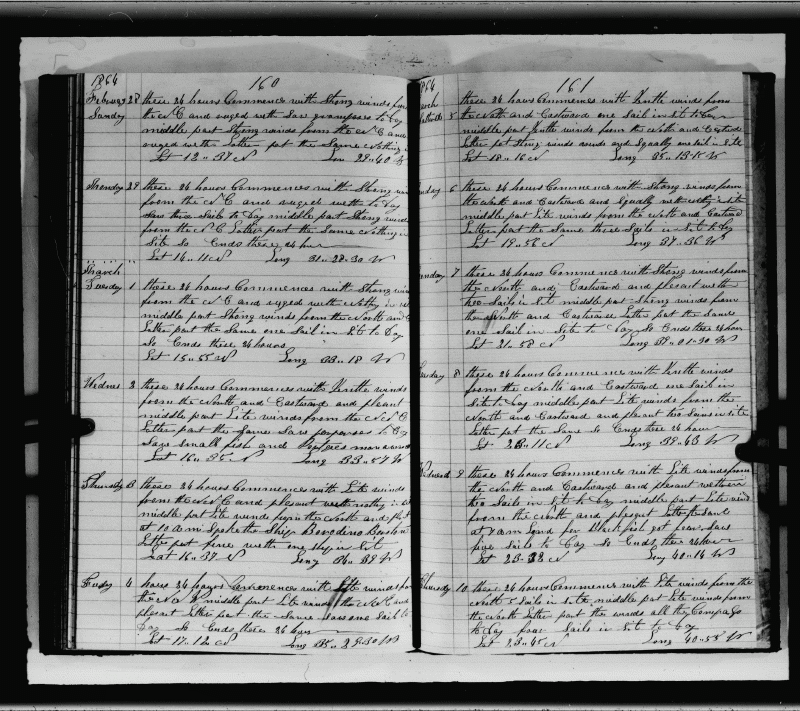 1864
160
February 28 these 24 hours Commences with Strong winds from
Sunday the N E and ruged with Saw grampuses to Day
middle part Strong winds from the N E and
ruged with Latter pat the Same Nothing
Lat 12 .. 37 N Lon 29 .. 40 W
Monday 29 these 24 hours Commences with Strong win
from the N E and ruged with to Day
Saw three Sails to Day middle part Strong winds
from the N E Latter part the Same Nothing in
Site So Ends these 24 hours
Lat 14 .. 11 N Long 31 .. 28 .. 30 W
March
Tuesday 1 these 24 hours Commences with Strong win
from the N E and ruged with Nothing in
middle part Strong winds from the North and E
Latter part the Same one Sail in Sit to Day
So Ends these 24 hours
Lat 15 .. 55 N Long 33 .. 18 W
Wednes 2 these 24 hours Commences with Gentle winds
from the North and Eastward and plesant
middle part Lite winds from the N E
Latter part the Same Saw porpoises to Day
Saw small fish and
Lat 16 .. 35 N Long 33 .. 57 W
Thursday 3 these 24 hours Commences with Lite winds
from the N E and plesant with nothing in
middle part lite winds from the North and
at 10 am Spoke the Ship Boston
Latter part with one ship in Sit
Lat 16 .. 37 N Long 34 .. 39 W
Friday 4 hours Commences with Lite winds from
the N E middle part Lite winds the N E and
plesant Latter part the Same Saw one Sail to
Day So Ends these 24 hours
Lat 17 .. 12 N Long 35 .. 29 .. 30 W
64
161
arch these 24 hours Commences with Gentle winds from
5 the North and Eastward one Sail in Sit to Day
middle part Gentle winds from the North and Eastward
Latter pat Strong winds and Squally one Sail in Site
Lat 18 .. 16 N Long 35 .. 13 .. 15 W
nday 6 these 24 hours Commences with Strong winds from
the North and Eastward and Squally with Nothing in Site
middle part Lite winds from the North and Eastward
Latter part the Same three Sails in Sit to Day
Lat 19 .. 56 N Long 37 .. 36 W
nday 7 these 24 hours Commences with Strong winds from
the North and Eastward and plesant with
two Sails in Sit middle part Strong winds from
the North and Eastward Latter part the Same
one Sail in Site to Day So Ends these 24 hours
Lat 21 .. 58 N Long 39 .. 01 .. 30 W
uesday 8 these 24 hours Commences with Gentle winds
from the North and Eastward one Sail in
Site to Day middle part Lite winds from the
North and Eastward and plesant two Sails in site
Latter pat the Same So Ends these 24 hours
Lat 23 .. 11 N Long 39 .. 43 W
9 these 24 hours Commences with Lite winds from
the North and Eastward and plesant
two Sails in Sit to Day middle part Lite winds
from the North and plesant Latter the Same
at 7 am Lowd for Black fish got four Saw
five Sails to Day So Ends these 24 hours
Lat 23 .. 32 N Long 40 .. 14 W
hursday 10 these 24 hours Commences with Lite winds from the
North 2 Sails in Site middle part Lite winds from
the North Latter part the winds all the Compass
to Day four Sails in Sit to Day
Lat 23 .. 45 N Long 40 .. 55 W